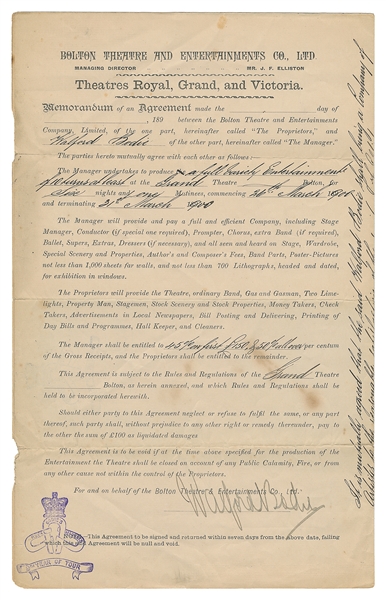 BOLTON THEATRE AND ENTERTAINMENTS CO., LTD
MANAGING DIRECTOR MR. J. F. ELLISTON
Theatres Royal, Grand, and Victoria.
Memorandum of an Agreement made the day of
, 189 between the Bolton Theatre and Entertainments
Company, Limited, of the one part, hereinafter called "The Proprietors," and
Walford Bodie of the other part, hereinafter called "The Manager."
The parties hereto mutually agree with each other as follows:—
The Manager undertakes to produce a full variety Entertainment
of 10 turns at least at the Grand Theatre Bolton, for
Six nights and Matinees, commencing 26th March 1900
and terminating 31st March 1900
The Manager will provide a full and efficient Company, including Stage
Manager, Conductor (if special one required), Prompter, Chorus, extra Band (if required),
Ballet, Supers, Extras, Dressers (if necessary), and all seen and heard on Stage, Wardrobe,
Special Scenery and Properties, Author's and Composer's Fees, Band Parts, Poster-Pictures
not less than 1,000 sheets for walls, and not less than 700 Lithographs, headed and dated,
for exhibition in windows.
The Proprietors will provide the Theatre, ordinary Band, Gas and Gasman, Two Lime-
lights, Property Man, Stagemen, Stock Scenery and Stock Properties, Money Takers, Check
Takers, Advertisements in Local Newspapers, Bill Posting and Delivering, Printing
of Day Bills and Programmes, Hall Keeper, and Cleaners.
The Manager shall be entitled to 45% on first £150 & 50% all over per centum
of the Gross Receipts, and the Proprietors shall be entitled to the remainder.
This Agreement is subject to the Rules and Regulations of the Grand Theatre
Bolton, as herein annexed, and which Rules and Regulations shall be held
to be incorporated herewith.
Should either party to this Agreement neglect or refuse to fulfil the same, or any part
thereof, such party shall, without prejudice to any other right or remedy thereunder, pay
to the other the sum of £100 as liquidated damages
This Agreement is to be void if at the time above specified for the production of the
Entertainment the Theatre shall be closed on account of any Public Calamity, Fire, or from any
other cause not within the control of the Proprietors.
For and on behalf of the Bolton Theatre & Entertainments Co., Ltd.
Walford Bodie
This Agreement to be signed and returned within seven days from the above date, failing
which this Agreement will be null and void.
TOUR
It is mutually agreed that the said Walford Bodie shall bring a Company of